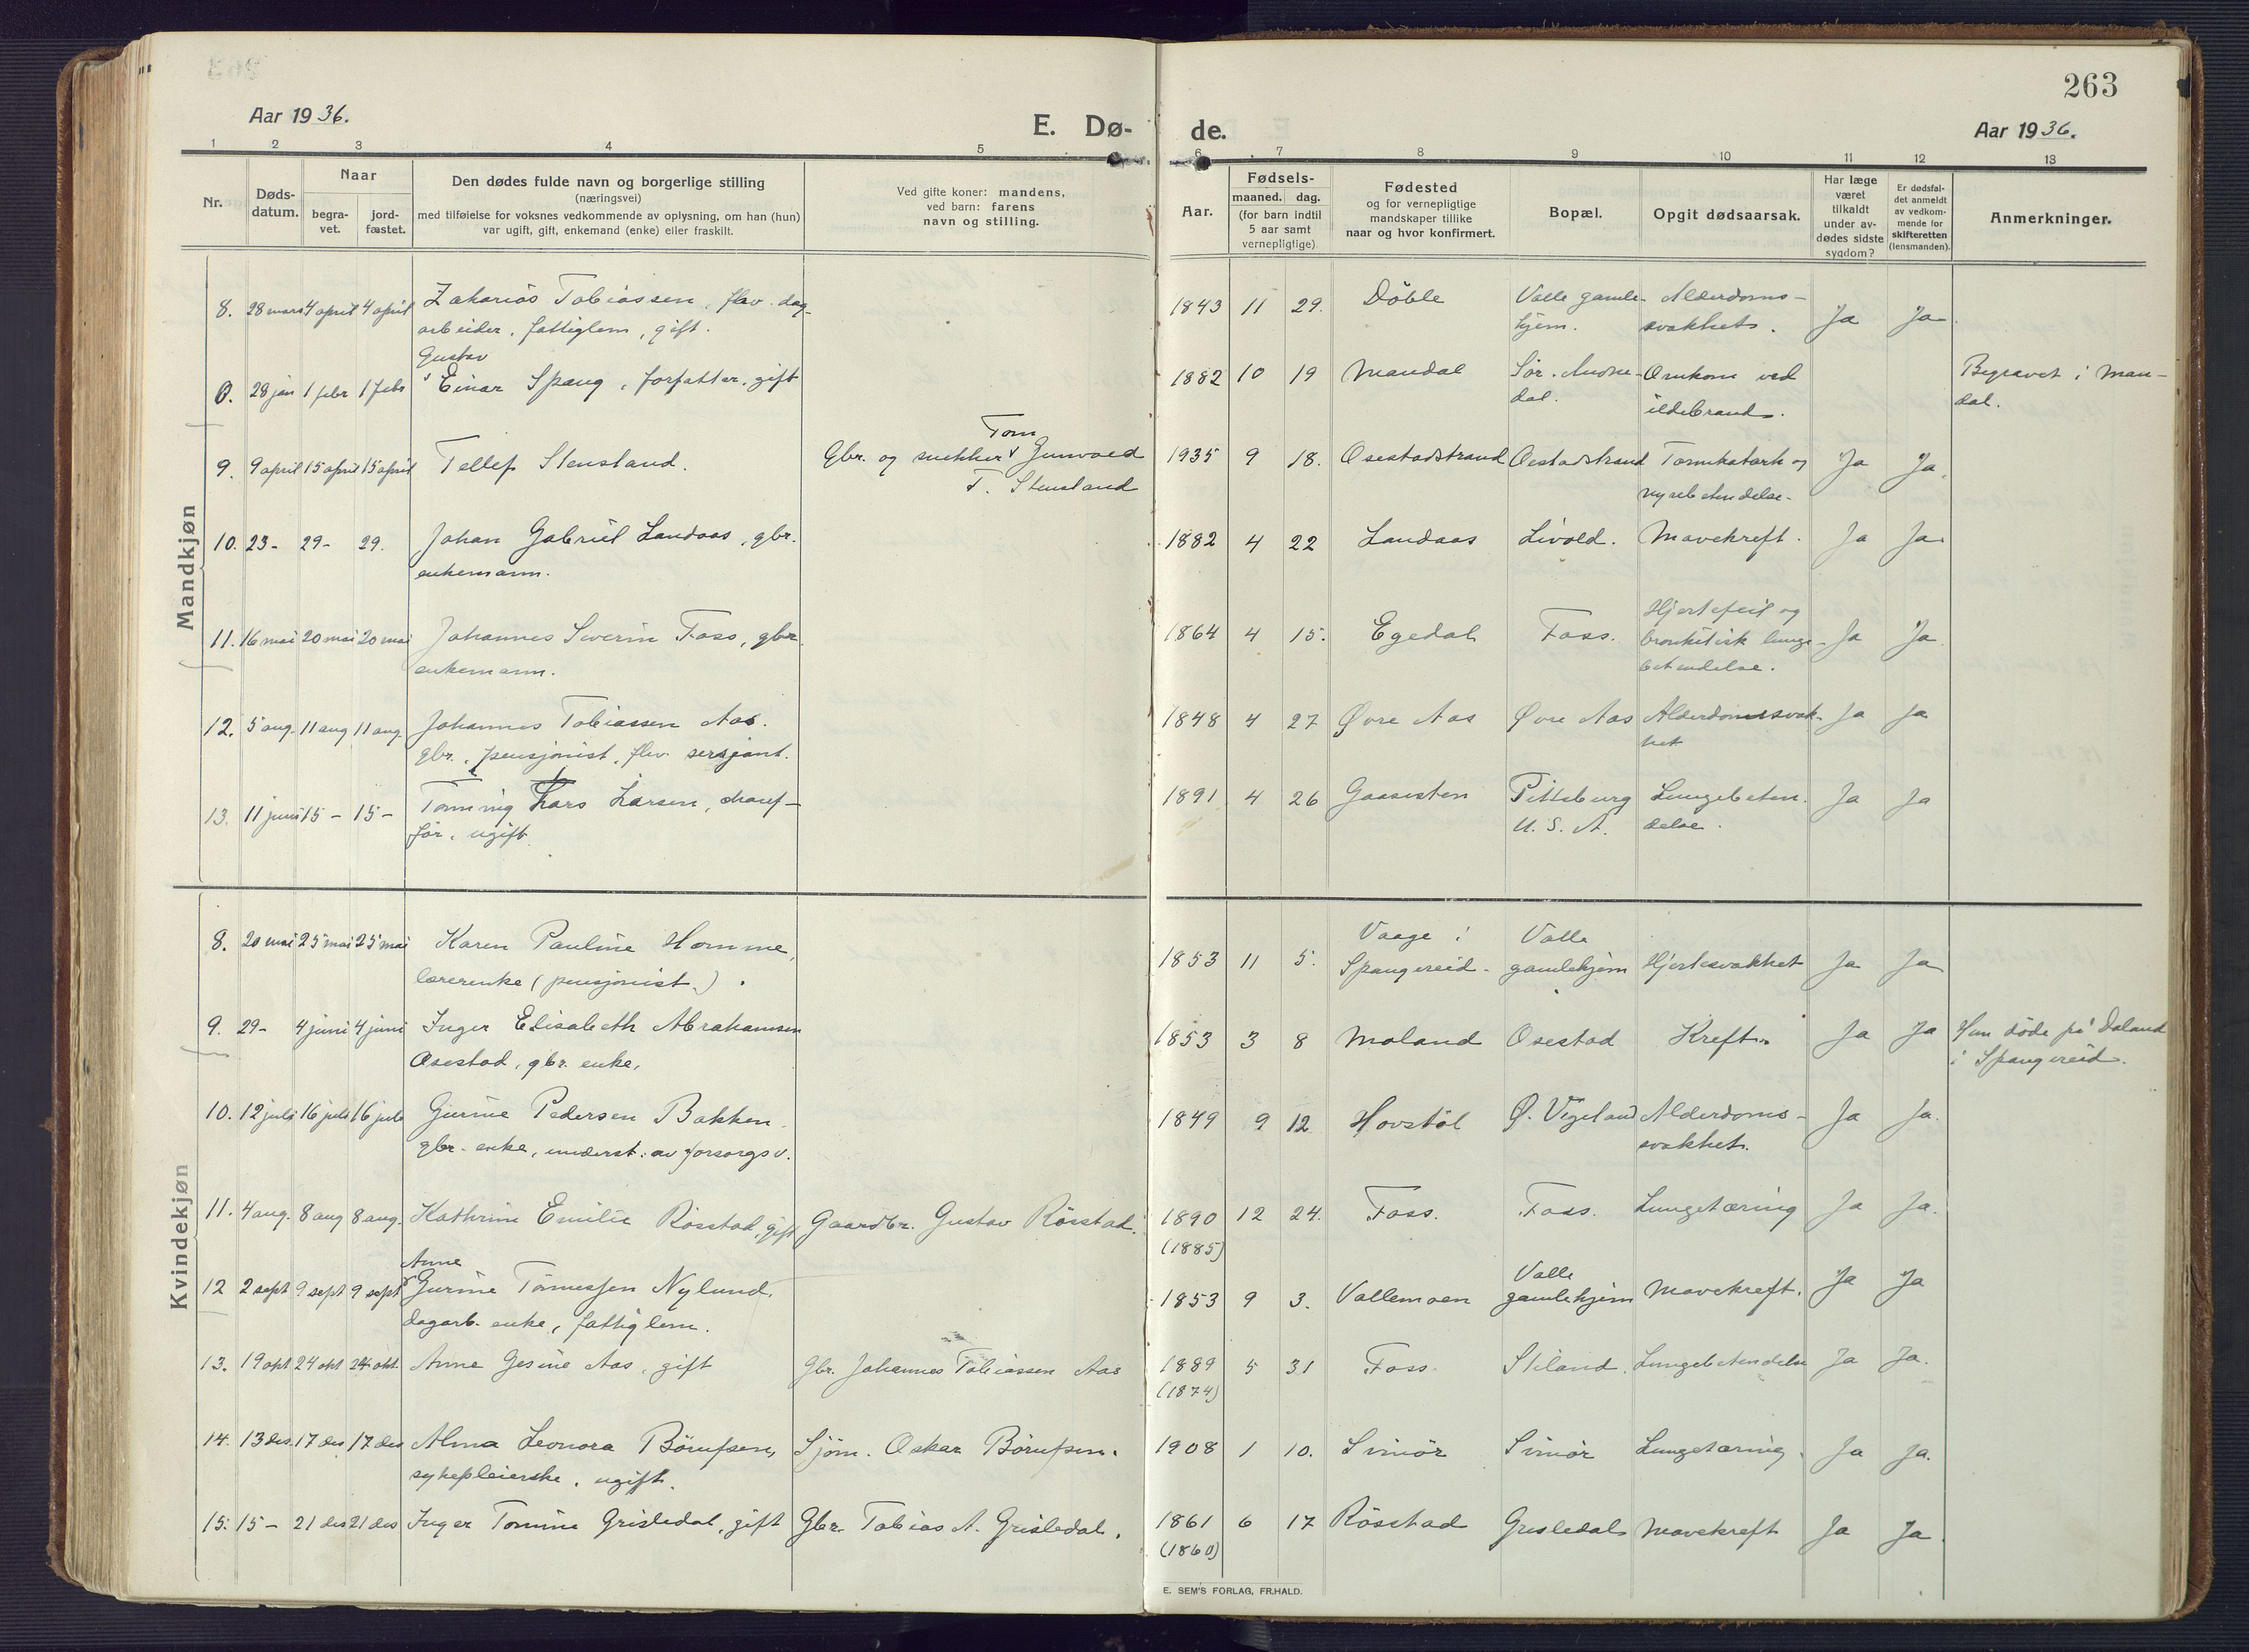 263
Aar 1936.
E. Dø-
de.
Aar 1936.
1 2 3 4 5 6 7 8 9 10 11 12 13
Nr.
Døds-
datum.
Naar
begra-
vet.
jord-
fæstet.
Den dødes fulde navn og borgerlige stilling
(næringsvei)
med tilføielse for voksnes vedkommende av oplysning, om han (hun)
var ugift, gift, enkemand (enke) eller fraskilt.
Ved gifte koner: mandens,
ved barn: farens
navn og stilling.
Aar.
Fødsels-
maaned. dag.
(for barn indtil
5 aar samt
vernepligtige)
Fødested
og for vernepligtige
mandskaper tillike
naar og hvor konfirmert.
Bopæl.
Opgit dødsaarsak.
Har læge
været
tilkaldt
under av-
dødes sidste
sygdom?
Er dødsfal-
det anmeldt
av vedkom-
mende for
skifteretten
(lensmanden).
Anmerkninger.
Mandkjøn
8. 28 mars 4 april 4 april Zakarias Tobiassen, flev. dag- 1843 11 29. Döble Valle gamle- Alderdoms- Ja Ja
arbeider, fattiglem, gift. hjem. svakhet.
Gustav
0. 28 jan 1 febr 1 febr Einar Spang, forfatter, gift 1882 10 19 Mandal Sør. Audne- Omkom ved Begravet i Man-
dal. ildebrand. dal.
Tom
9. 9 april 15 april 15 april Tellef Stensland. Gbr. og snekker Gunvald 1935 9 18. Osestadstrand Oestadstrand Tarmkatarh og Ja Ja.
T. Stensland nyrebetendelse.
10. 23- 29- 29. Johan Gabriel Landaas, gbr. 1882 4 22 Landaas Livold. Mavekreft. Ja Ja
enkemann.
11. 16 mai 20 mai 20 mai Johannes Severin Foss, gbr. 1864 4 15. Egedal Foss. Hjertefeil og Ja Ja
enkemann. bronkitisk lunge-
betendelse.
12. 5 aug. 11 aug 11 aug. Johannes Tobiassen Aas. 1848 4 27 Øvre Aas Øvre Aas Alderdomssvak- Ja Ja
gbr., pensjonist, flev. sersjant. het
13. 11 juni 15- 15- Tønning Lars Larsen, chauf- 1891 4 26 Gaaseston Pittsburg Lungebeten- Ja Ja
för, ugift. U. S. A. delse.
Kvindekjøn
8. 20 mai 25 mai 25 mai Karen Pauline Homme, 1853 11 5. Vaage i Valle Hjertesvakhet Ja Ja
lærerenke (pensjonist.). Spangereid- gamlehjem
9. 29- 4 juni 4 juni Inger Elisabeth Abrahamsen 1853 3 8 Moland Osestad Kreft. Ja Ja Hun döde på Daland
Osestad, gbr. enke, i Spangereid.
10. 12 juli 16 juli 16 juli Gurine Pedersen Bakken 1849 9 12 Hovstöl Ø. Vigeland Alderdoms- Ja Ja.
gbr. enke, underst. av forsorgsv. svakhet.
11. 4 aug. 8 aug 8 aug. Kathrine Emilie Rösstad, gift Gaardbr. Gustav Rösstad. 1890 12 24. Foss. Foss. Lungetæring Ja Ja.
(1885)
Anne
12 2 sept 9 sept 9 sept Gurine Tönnessen Nylund, 1853 9 3. Vallemoen Valle gamlehjem Mavekreft. Ja Ja
dagarb. enke, fattiglem.
13. 19 okt 24 okt 24 okt. Anne Gesine Aas, gift Gbr. Johannes Tobiassen Aas 1889 5 31 Foss Stiland. Lungebetendelse Ja Ja.
(1874)
14. 13 des. 17 des 17 des Alma Leonora Börufsen, Sjöm. Oskar Börufsen. 1908 1 10. Svinör Svinör Lungetæring. Ja Ja.
sykepleierske, ugift.
15. 15- 21 des 21 des Inger Tomine Grisledal, gift Gbr. Tobias A. Grisledal. 1861 6 17 Rösstad Grisledal Mavekreft Ja Ja
(1860)
E. SEM'S FORLAG, FR.HALD.